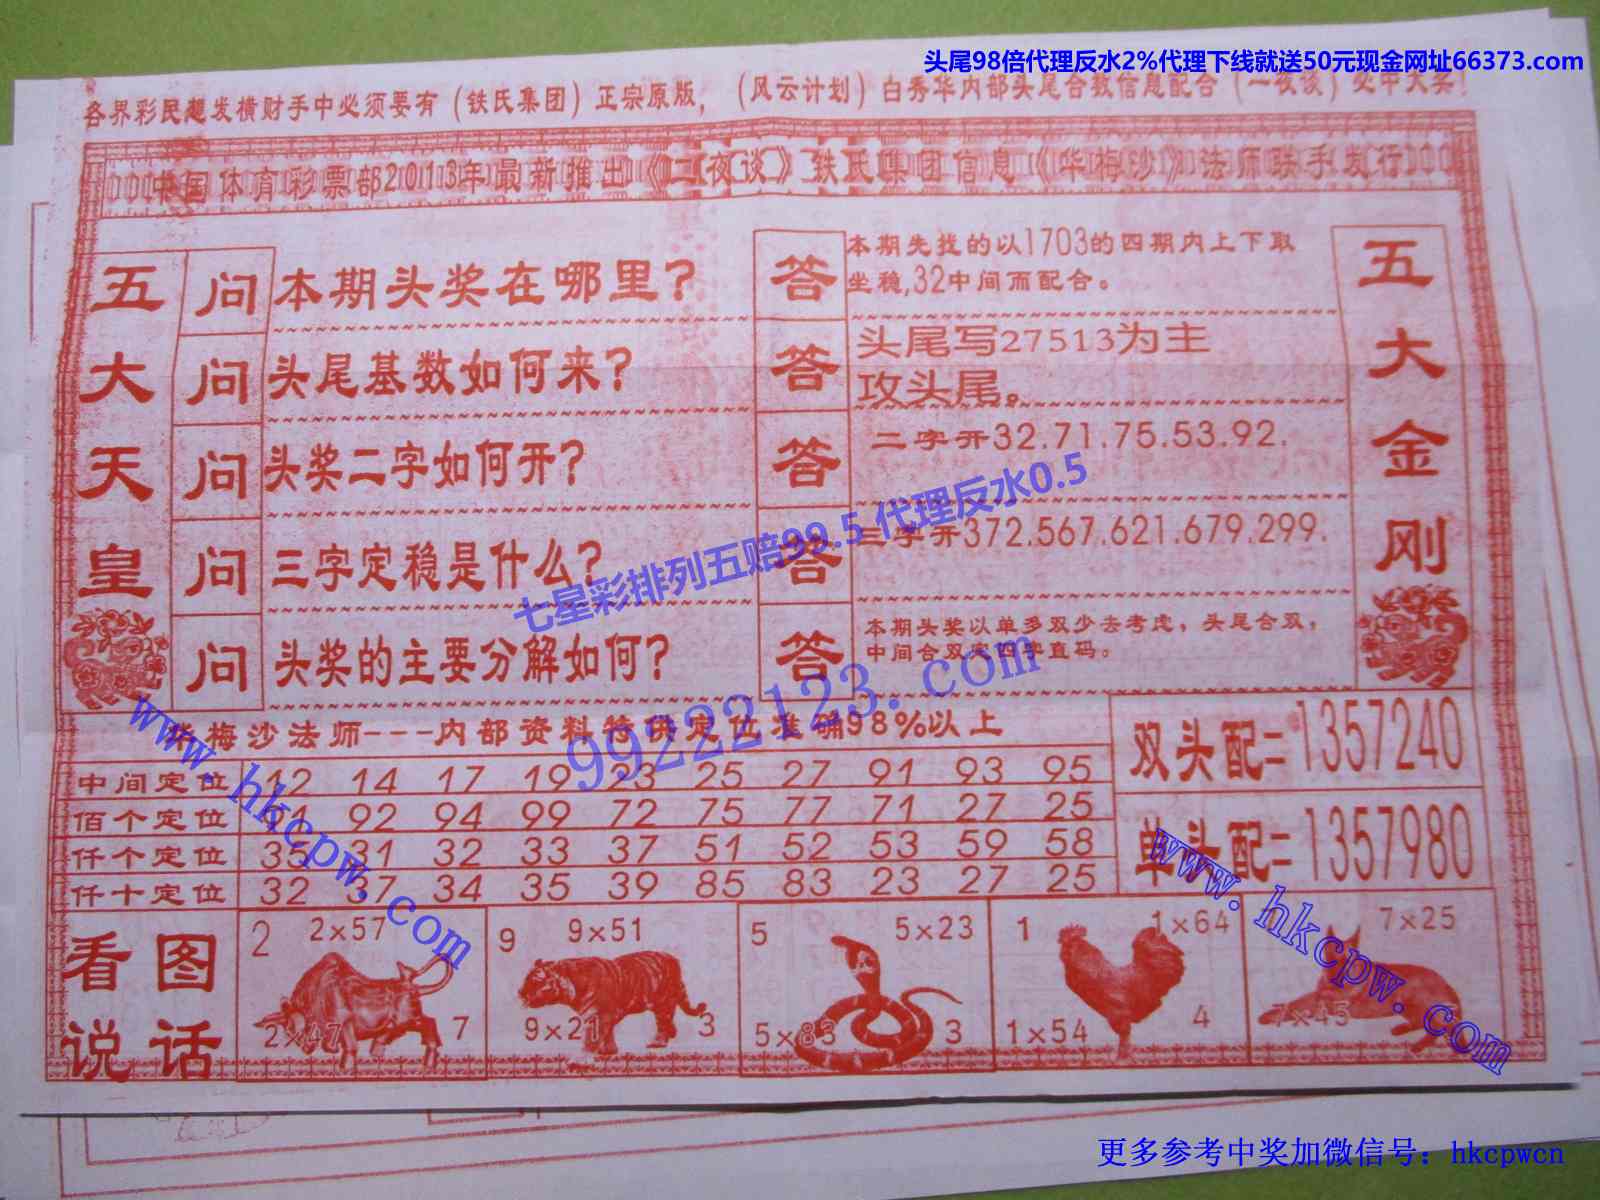 头尾98倍代理反水2%代理下线就送50元现金网址66373.com
各界彩民想发横财手中必须要有（铁氏集团）正宗原版，（风云计划）白秀华内部头尾合数信息配合（一夜谈）必中大奖！
中国体育彩票部2013年最新推出《二夜谈》铁氏集团信息《华梅沙》法师联手发行
五大天皇
问 本期头奖在哪里？
答 本期先找的以1703的四期内上下取
坐稳,32中间而配合。
问 头尾基数如何来？
答 头尾写27513为主
攻头尾。
问 头奖二字如何开？
答 二字开32.71.75.53.92.
问 三字定稳是什么？
答 三字开372.567.621.679.299.
问 头奖的主要分解如何？
答 本期头奖以单多双少去考虑，头尾合双，
中间合双定四字直码。
五大金刚
七星彩排列五赔99.5 代理反水0.5
99222123.com
华梅沙法师---内部资料特供定位准确98%以上
中间定位 12 14 17 19 23 25 27 91 93 95
佰个定位 91 92 94 99 72 75 77 71 27 25
仟个定位 35 31 32 33 37 51 52 53 59 58
仟十定位 32 37 34 35 39 85 83 23 27 25
双头配=1357240
单头配=1357980
www.hkcpw.com
www.hkcpw.com
看图
说话
2 2×57
2×47 7
9 9×51
9×21 3
5 5×23
5×83 3
1 1×64
1×54 4
7×25
7×45
更多参考中奖加微信号：hkcpwcn